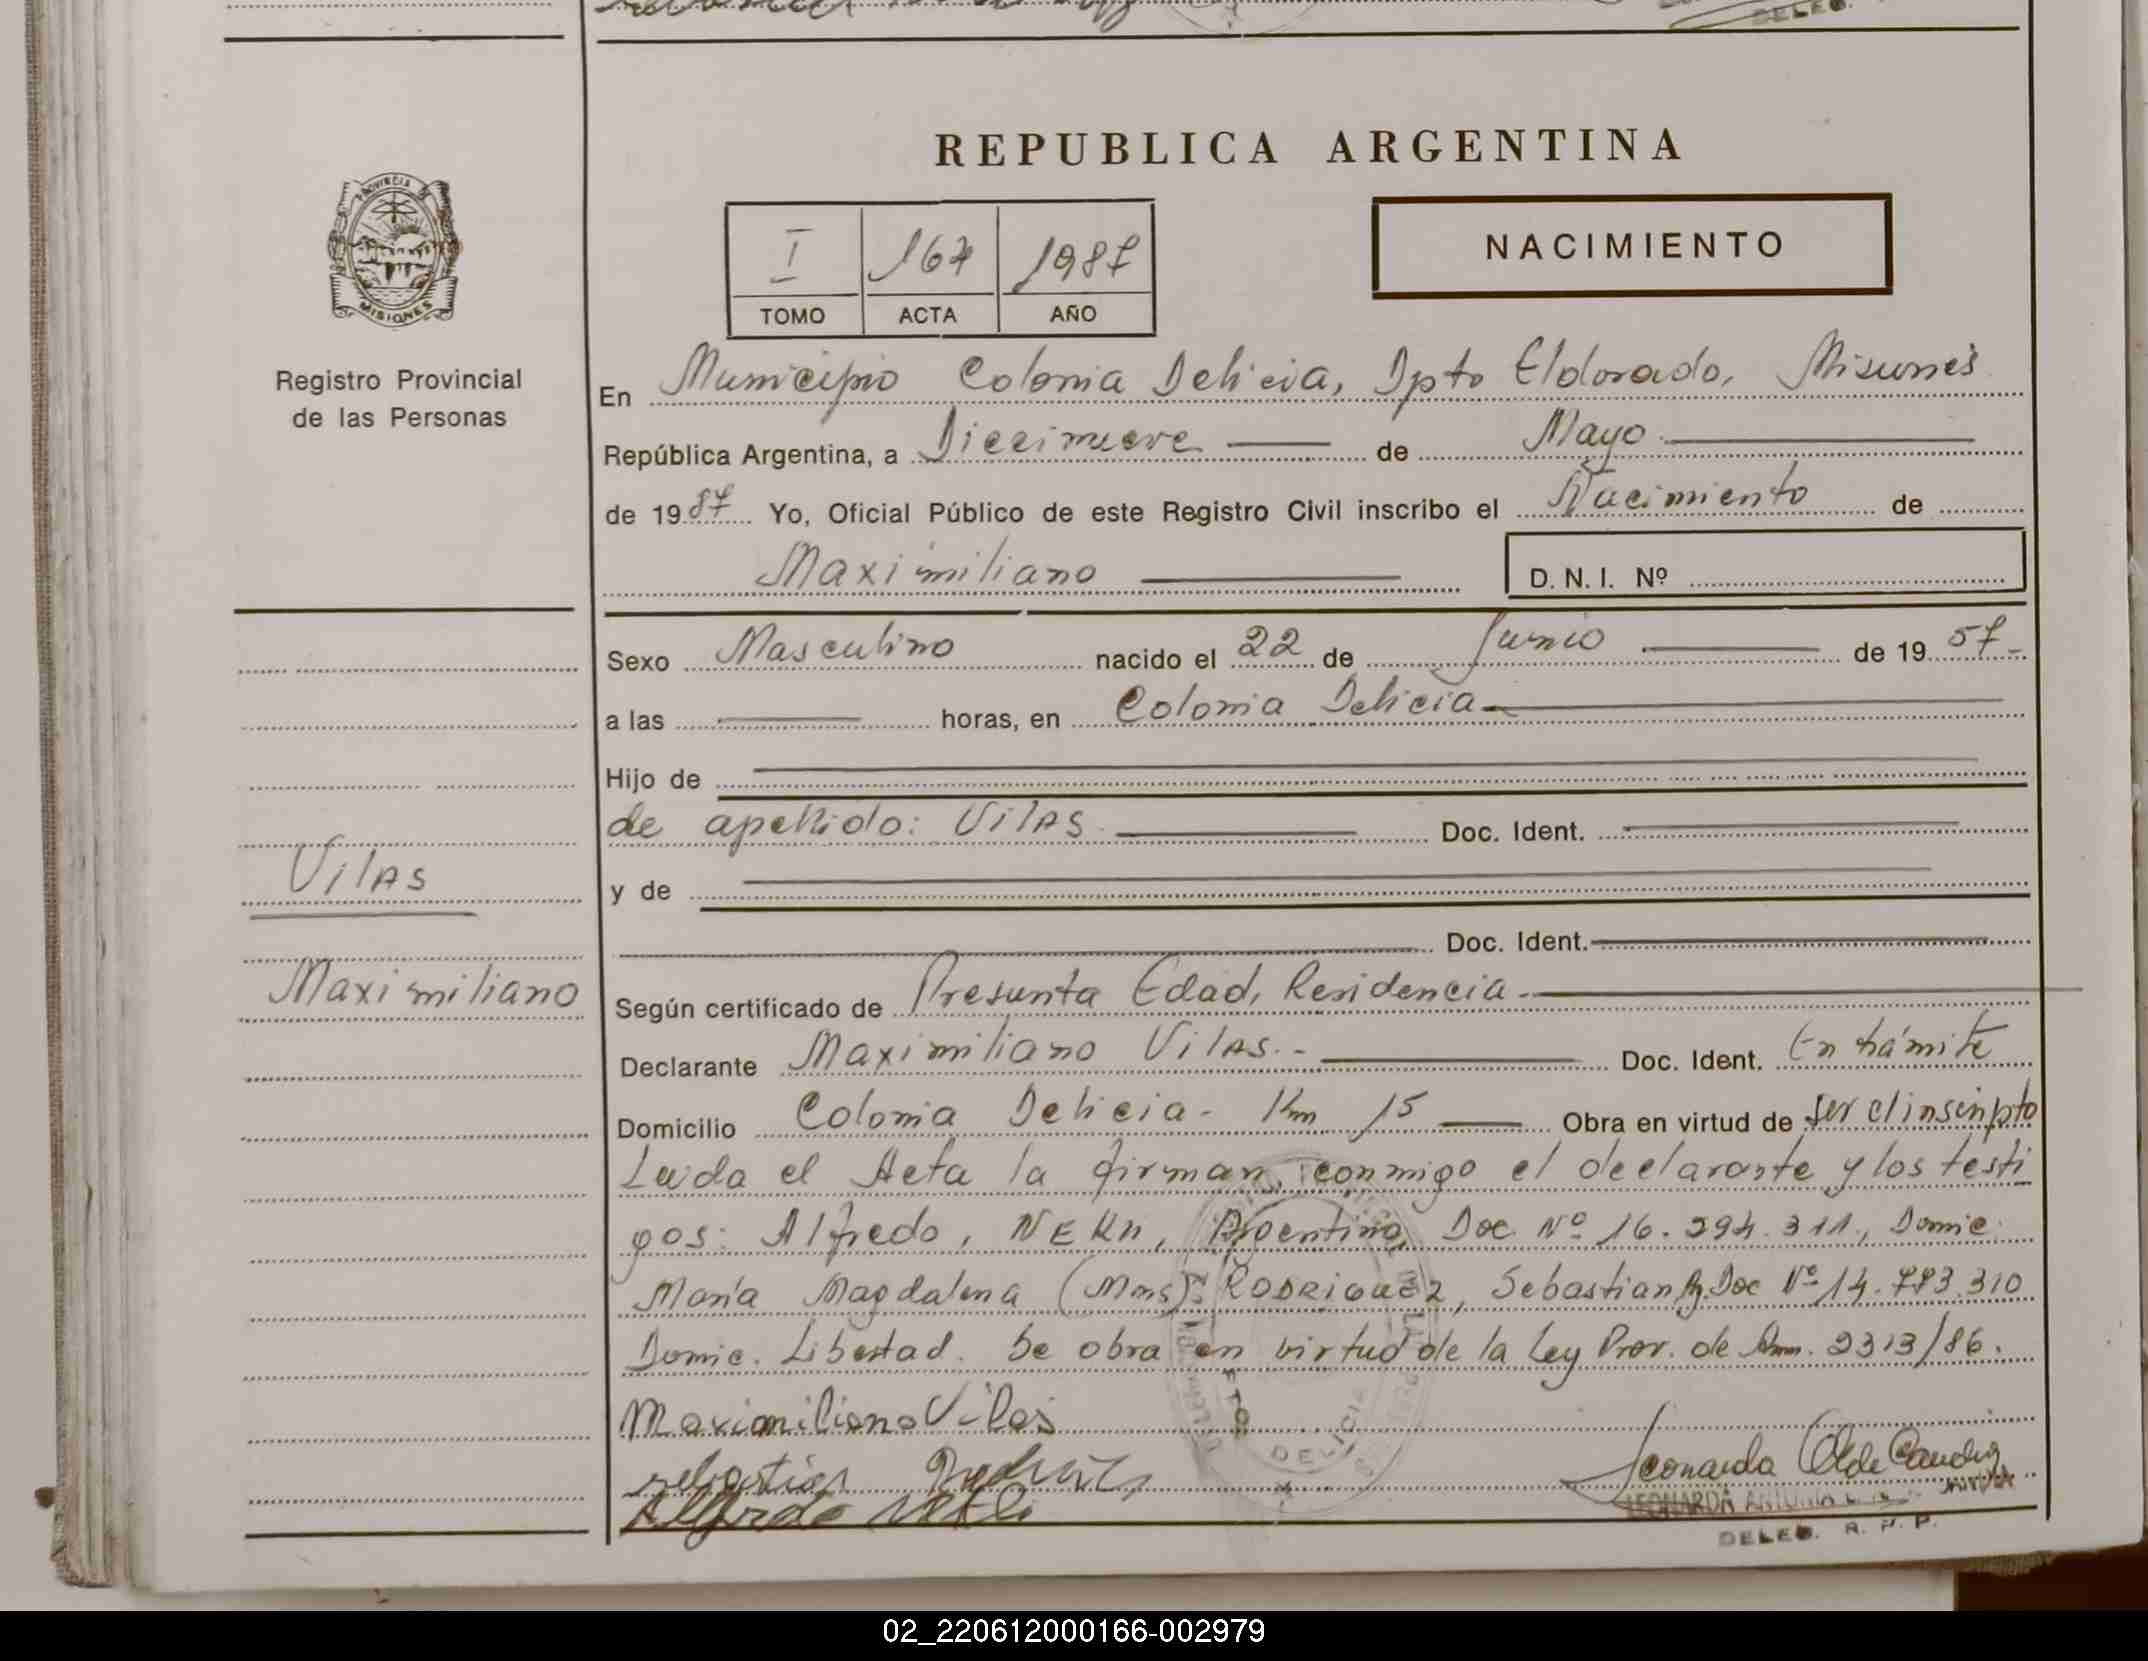 REPUBLICA ARGENTINA
PROVINCIA DE
MISIONES
Registro Provincial
de las Personas
I 167 1987
TOMO ACTA AÑO
NACIMIENTO
En Municipio Colonia Delicia, Dpto Eldorado, Misiones
República Argentina, a Diecinueve de Mayo
de 1987 Yo, Oficial Público de este Registro Civil inscribo el Nacimiento de
Maximiliano D.N.I. Nº
Sexo Masculino nacido el 22 de Junio de 1957-
a las horas, en Colonia Delicia
Hijo de
de apellido: Vilas Doc. Ident.
Vilas
y de
Doc. Ident.
Maximiliano
Según certificado de Presunta Edad, Residencia-
Declarante Maximiliano Vilas.- Doc. Ident. En trámite
Domicilio Colonia Delicia- Km 15 Obra en virtud de ser el inscripto
Leida el Acta la firman, conmigo el declarante y los testi
gos: Alfredo, Argentino, Doc Nº 16.294.311, Domic.
María Magdalena (Mnes): RODRIGUEZ, Sebastian Doc Nº 14.773.310
Domic. Libertad. Se obra en virtud de la Ley Prov. de Amn. 2313/86.
Maximiliano Vilas
Sebastian
Alfredo
DELICIA
Leonarda
LEONARDA
DELEG. R. P. P.
02_220612000166-002979